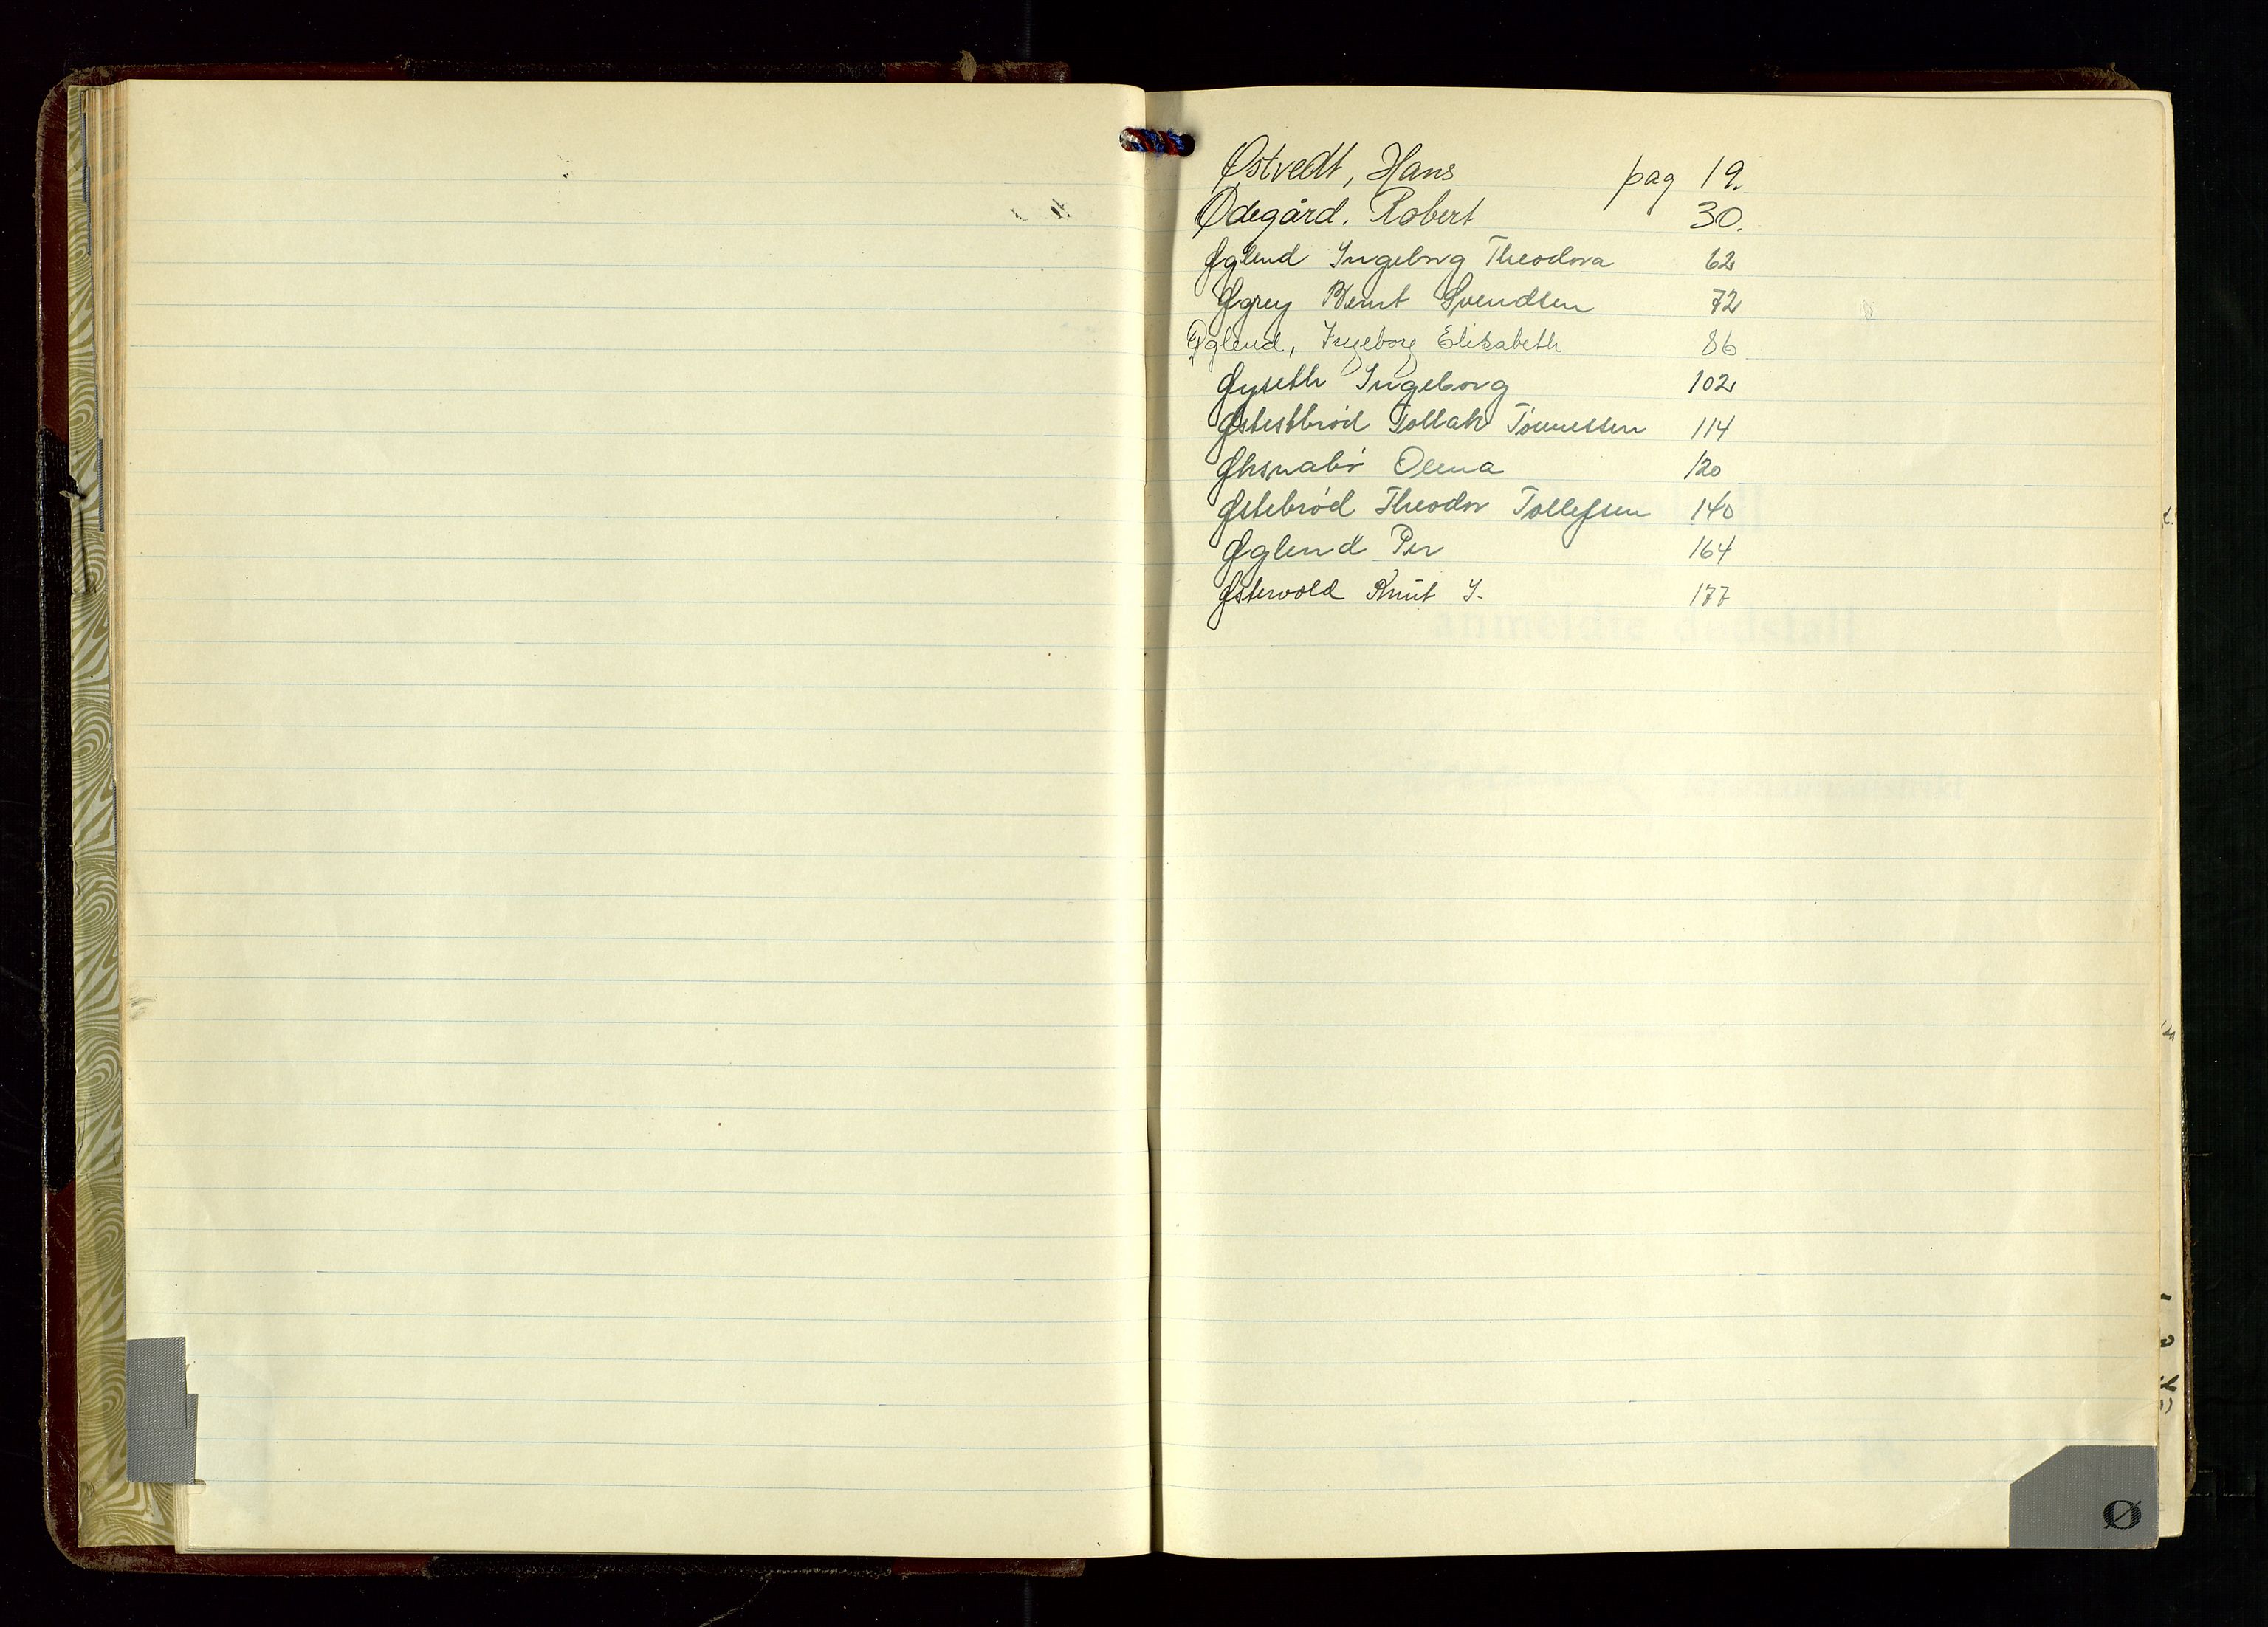 Østvedt, Hans pag 19.
Ødegård. Robert 30.
Øglend Ingeborg Theodora 62
Øgrey Bernt Svendsen 72
Øglend, Ingeborg Elisabeth 86
Øyseth Ingeborg 102
Østestbrød Tollak Tønnessen 114
Øksnabø Olena 120
Østebrød Theodor Tollefsen 140
Øglend Per 164
Østervold Knut I. 177
anmeldte dødsfall
Ø